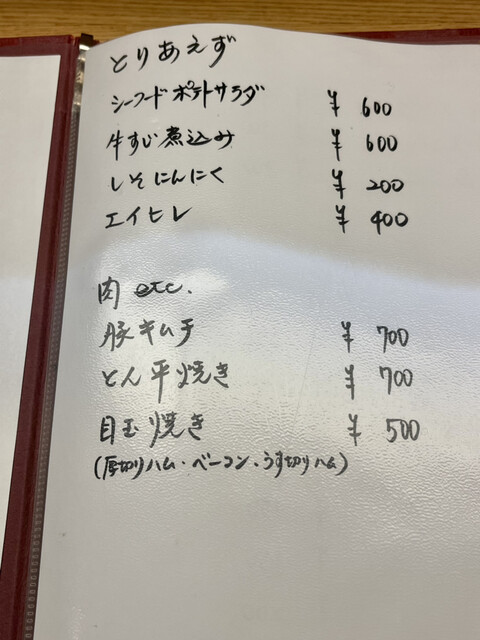 とりあえず
シーフードポテトサラダ ¥ 600
牛すじ煮込み ¥ 600
しそにんにく ¥ 200
エイヒレ ¥ 400
肉 etc.
豚キムチ ¥ 700
とん平焼き ¥ 700
目玉焼き ¥ 500
(厚切りハム・ベーコン・うす切りハム)